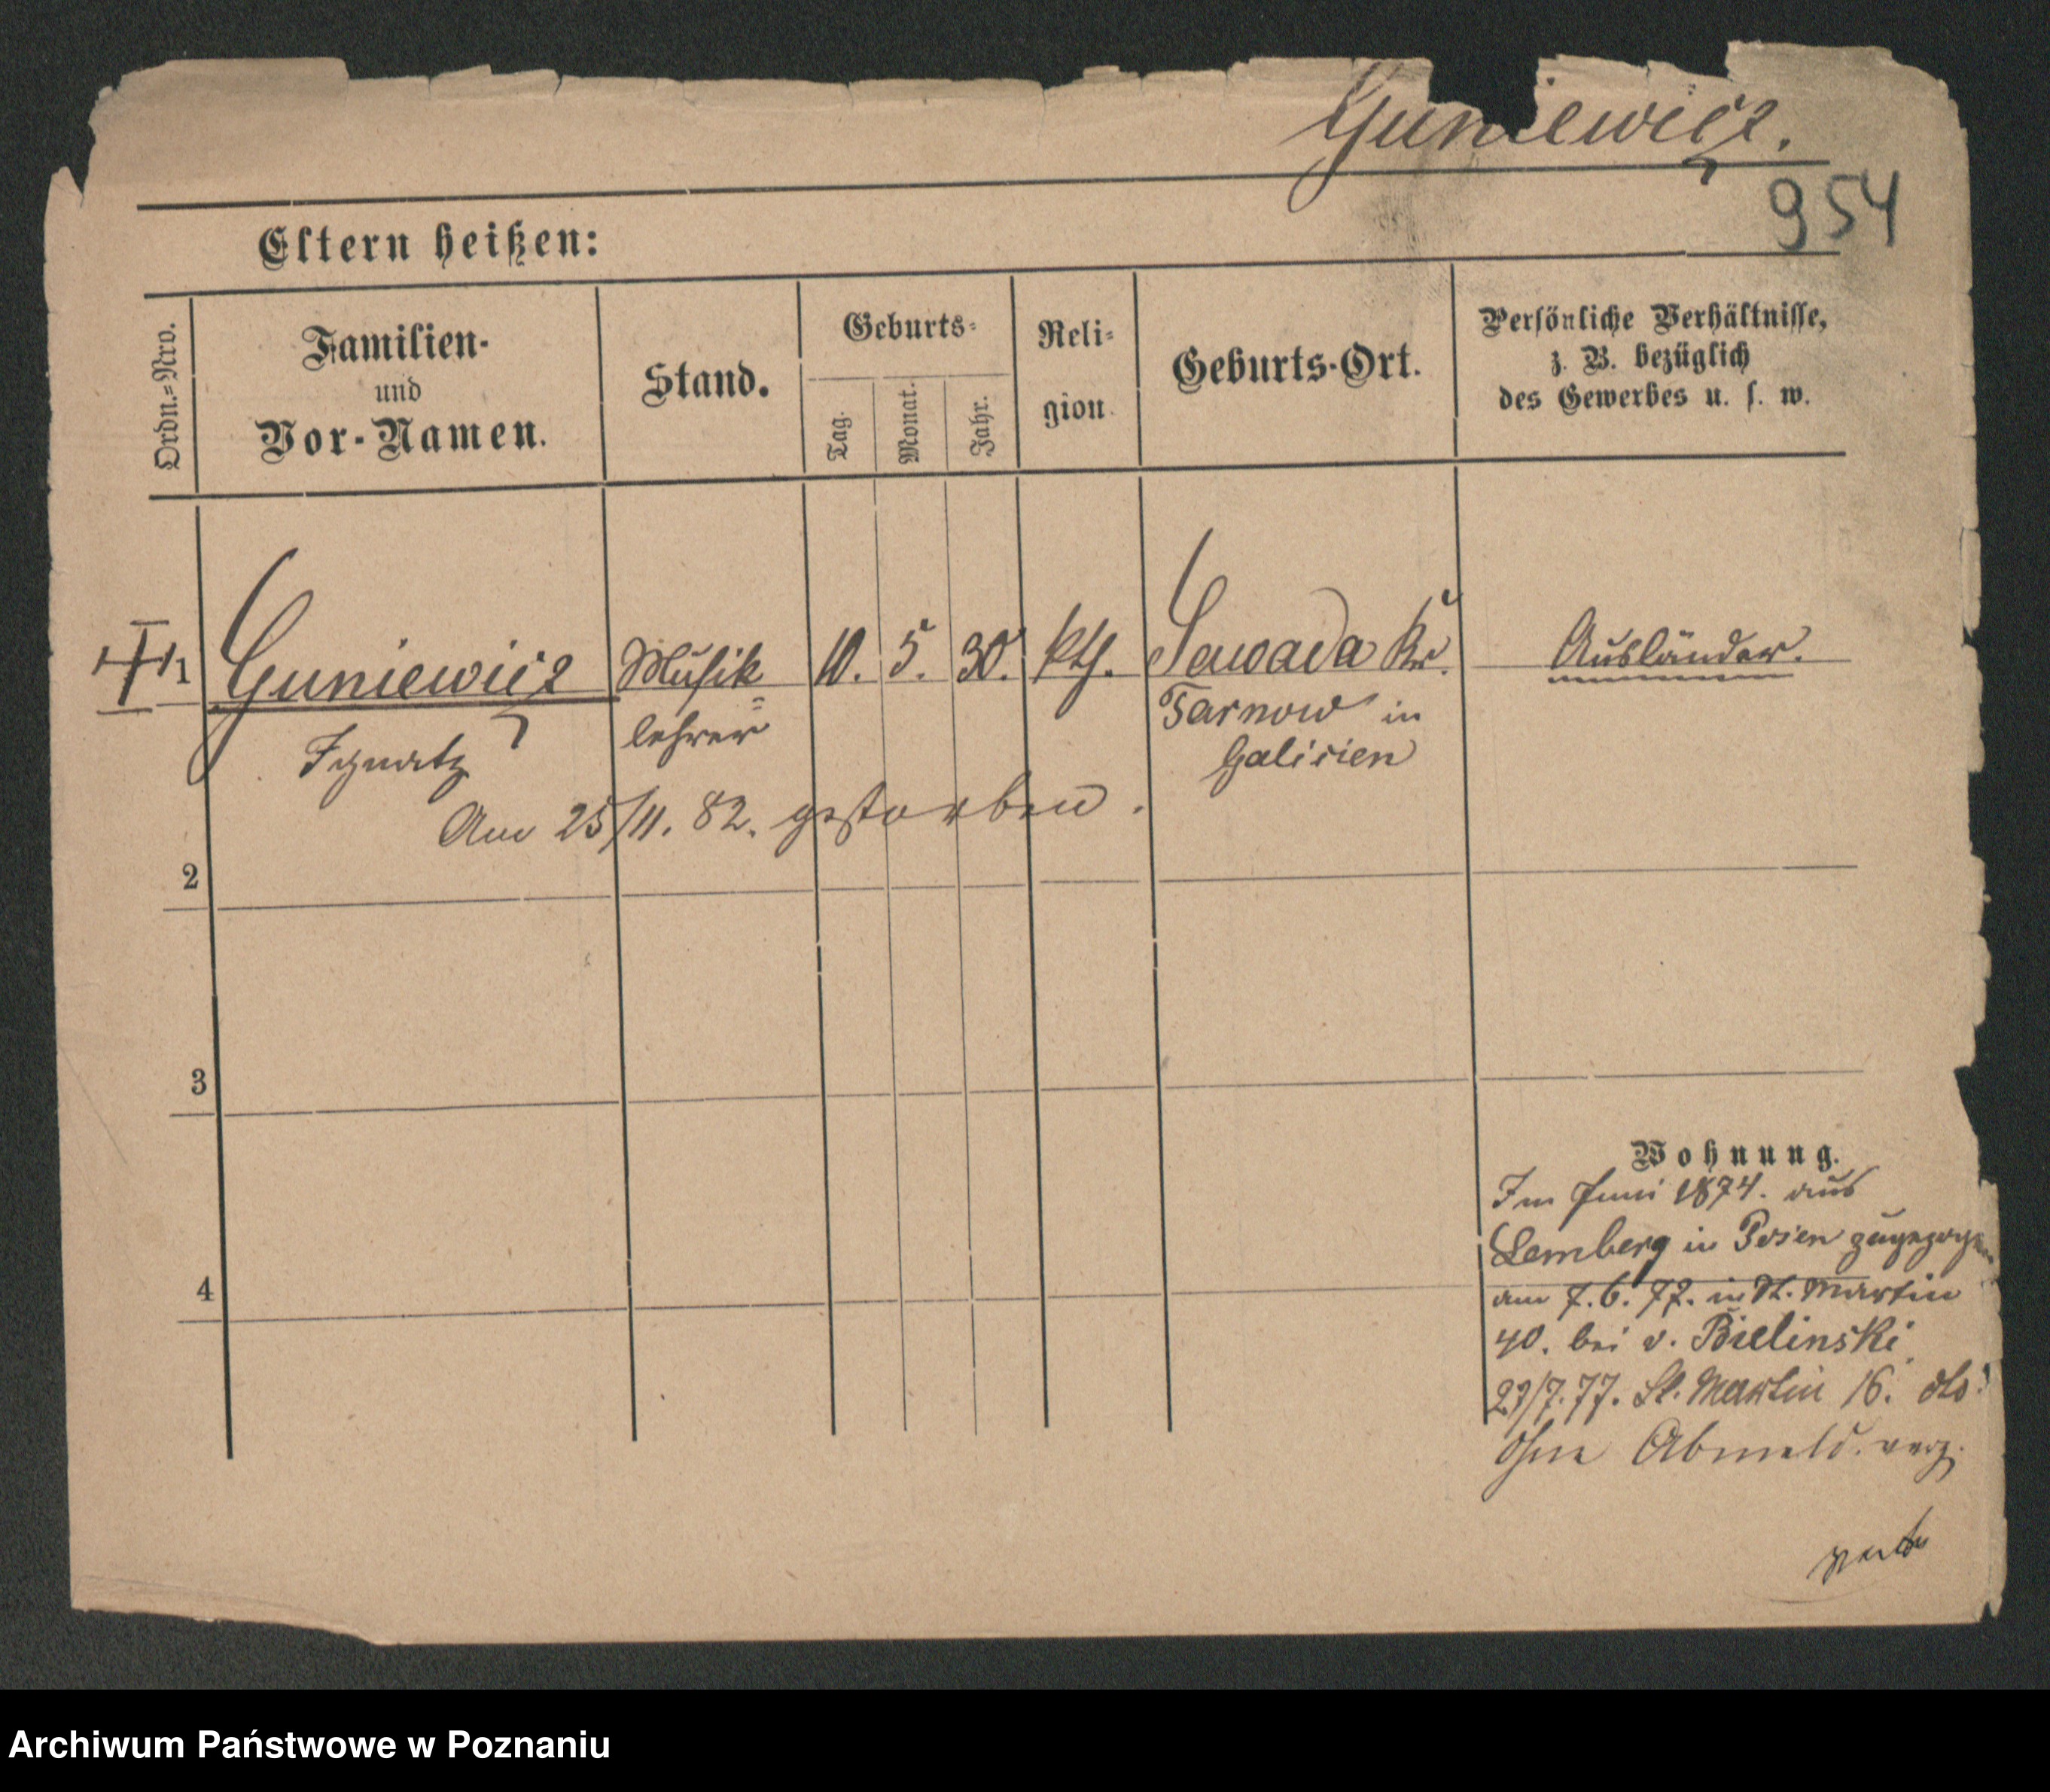 Guniewicz.
954
Eltern heißen:
Ordn.-Nro.
Familien-
und
Vor-Namen.
Stand.
Geburts-
Tag.
Monat.
Jahr.
Reli-
gion
Geburts-Ort.
Persönliche Verhältnisse,
z. B. bezüglich
des Gewerbes u. s. w.
1 Guniewicz Musik 10. 5. 30. kth. Sawada Kr. Ausländer.
Ignatz lehrer Tarnow in
Galicien
Am 25/11. 82. gestorben.
2
3
4
Wohnung.
Im Juni 1874. aus
Lemberg in Posen zugezogen
am 7.6.77. in St. Martin
40. bei v. Bielinski
23/7.77. St. Martin 16. dto
ohne Abmeld. verz.
Archiwum Państwowe w Poznaniu